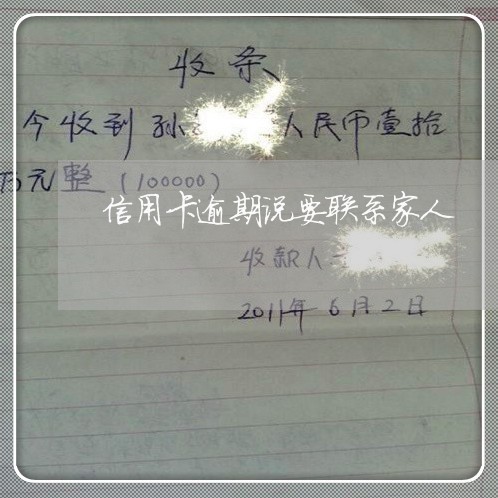 收条
今收到孙 人民币壹拾
万元整（100000）
信用卡逾期说要联系家人
收款人
2011年6月2日